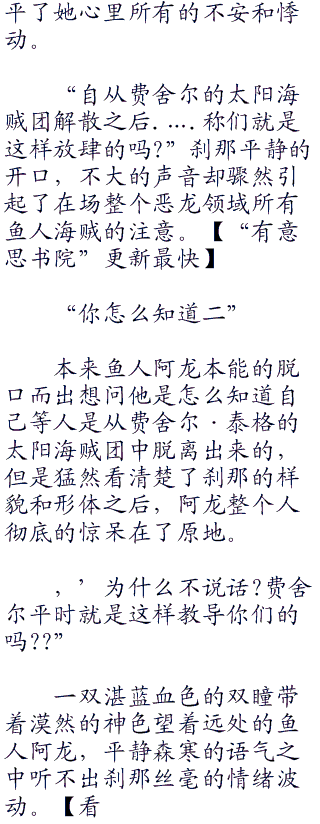 平了她心里所有的不安和悸
动。
“自从费舍尔的太阳海
贼团解散之后.….称们就是
这样放肆的吗?”刹那平静的
开口，不大的声音却骤然引
起了在场整个恶龙领域所有
鱼人海贼的注意。【“有意
思书院”更新最快】
“你怎么知道二”
本来鱼人阿龙本能的脱
口而出想问他是怎么知道自
己等人是从费舍尔·泰格的
太阳海贼团中脱离出来的，
但是猛然看清楚了刹那的样
貌和形体之后，阿龙整个人
彻底的惊呆在了原地。
，’为什么不说话?费舍
尔平时就是这样教导你们的
吗??”
一双湛蓝血色的双瞳带
着漠然的神色望着远处的鱼
人阿龙，平静森寒的语气之
中听不出刹那丝毫的情绪波
动。【看